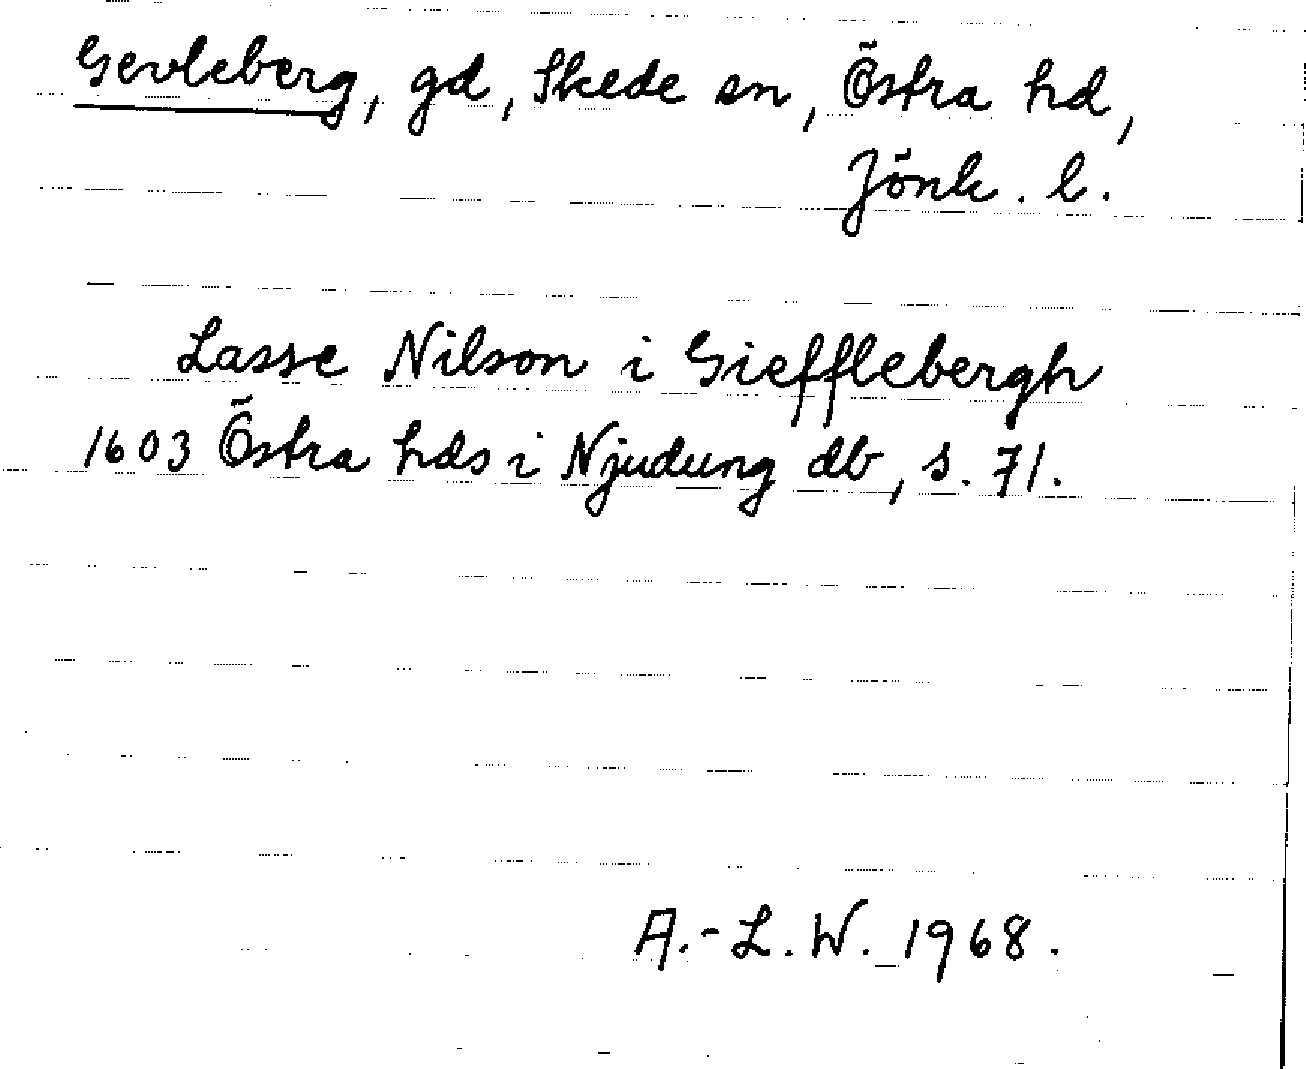 Gevleberg, gd, Skede sn, Östra hd,
Jönk. l.
Lasse Nilson i Giefflebergh
1603 Östra hds i Njudung db, s. 71.
A.-L. W. 1968.